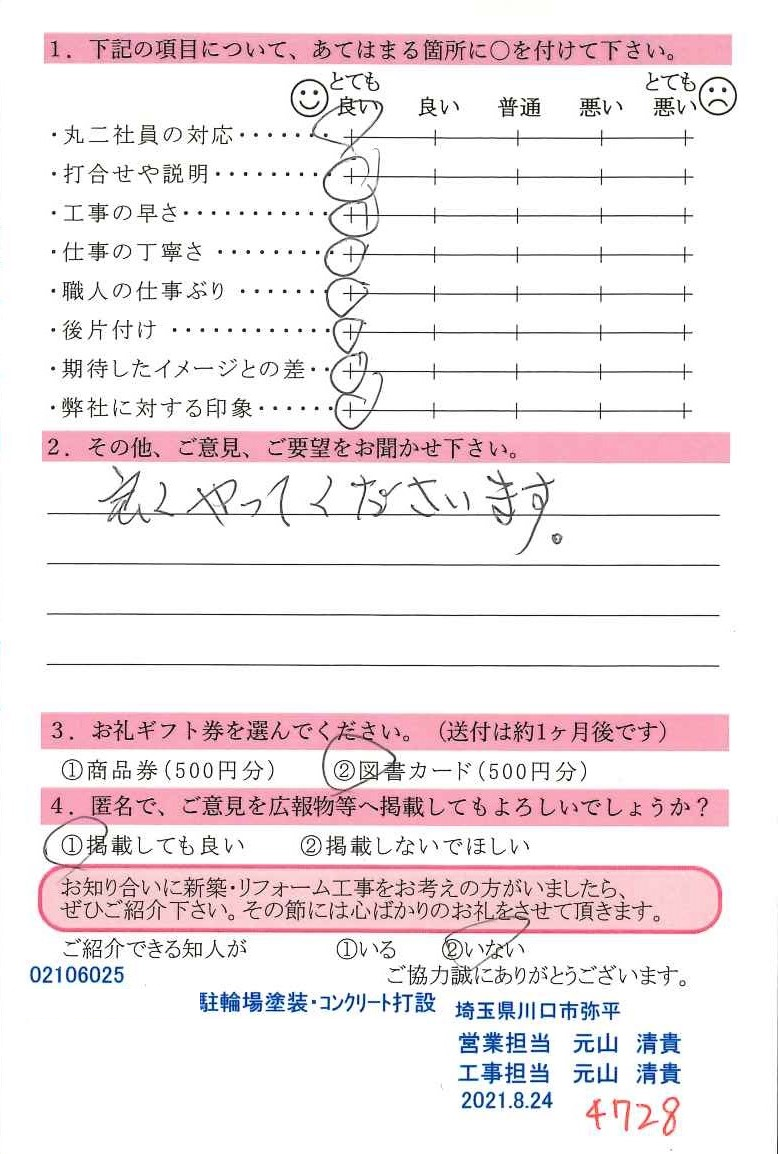 1．下記の項目について、あてはまる箇所に○を付けて下さい。
とても良い 良い 普通 悪い とても悪い
・丸二社員の対応・・・・・・
・打合せや説明・・・・・・・・
・工事の早さ・・・・・・・・・・
・仕事の丁寧さ・・・・・・・・
・職人の仕事ぶり・・・・・・
・後片付け・・・・・・・・・・・
・期待したイメージとの差・・
・弊社に対する印象・・・・・・
2．その他、ご意見、ご要望をお聞かせ下さい。
良くやってくださいます。
3．お礼ギフト券を選んでください。（送付は約1ヶ月後です）
①商品券（500円分） ②図書カード（500円分）
4．匿名で、ご意見を広報物等へ掲載してもよろしいでしょうか？
①掲載しても良い ②掲載しないでほしい
お知り合いに新築・リフォーム工事をお考えの方がいましたら、
ぜひご紹介下さい。その節には心ばかりのお礼をさせて頂きます。
ご紹介できる知人が ①いる ②いない
02106025 ご協力誠にありがとうございます。
駐輪場塗装・コンクリート打設 埼玉県川口市弥平
営業担当 元山 清貴
工事担当 元山 清貴
2021.8.24
4728